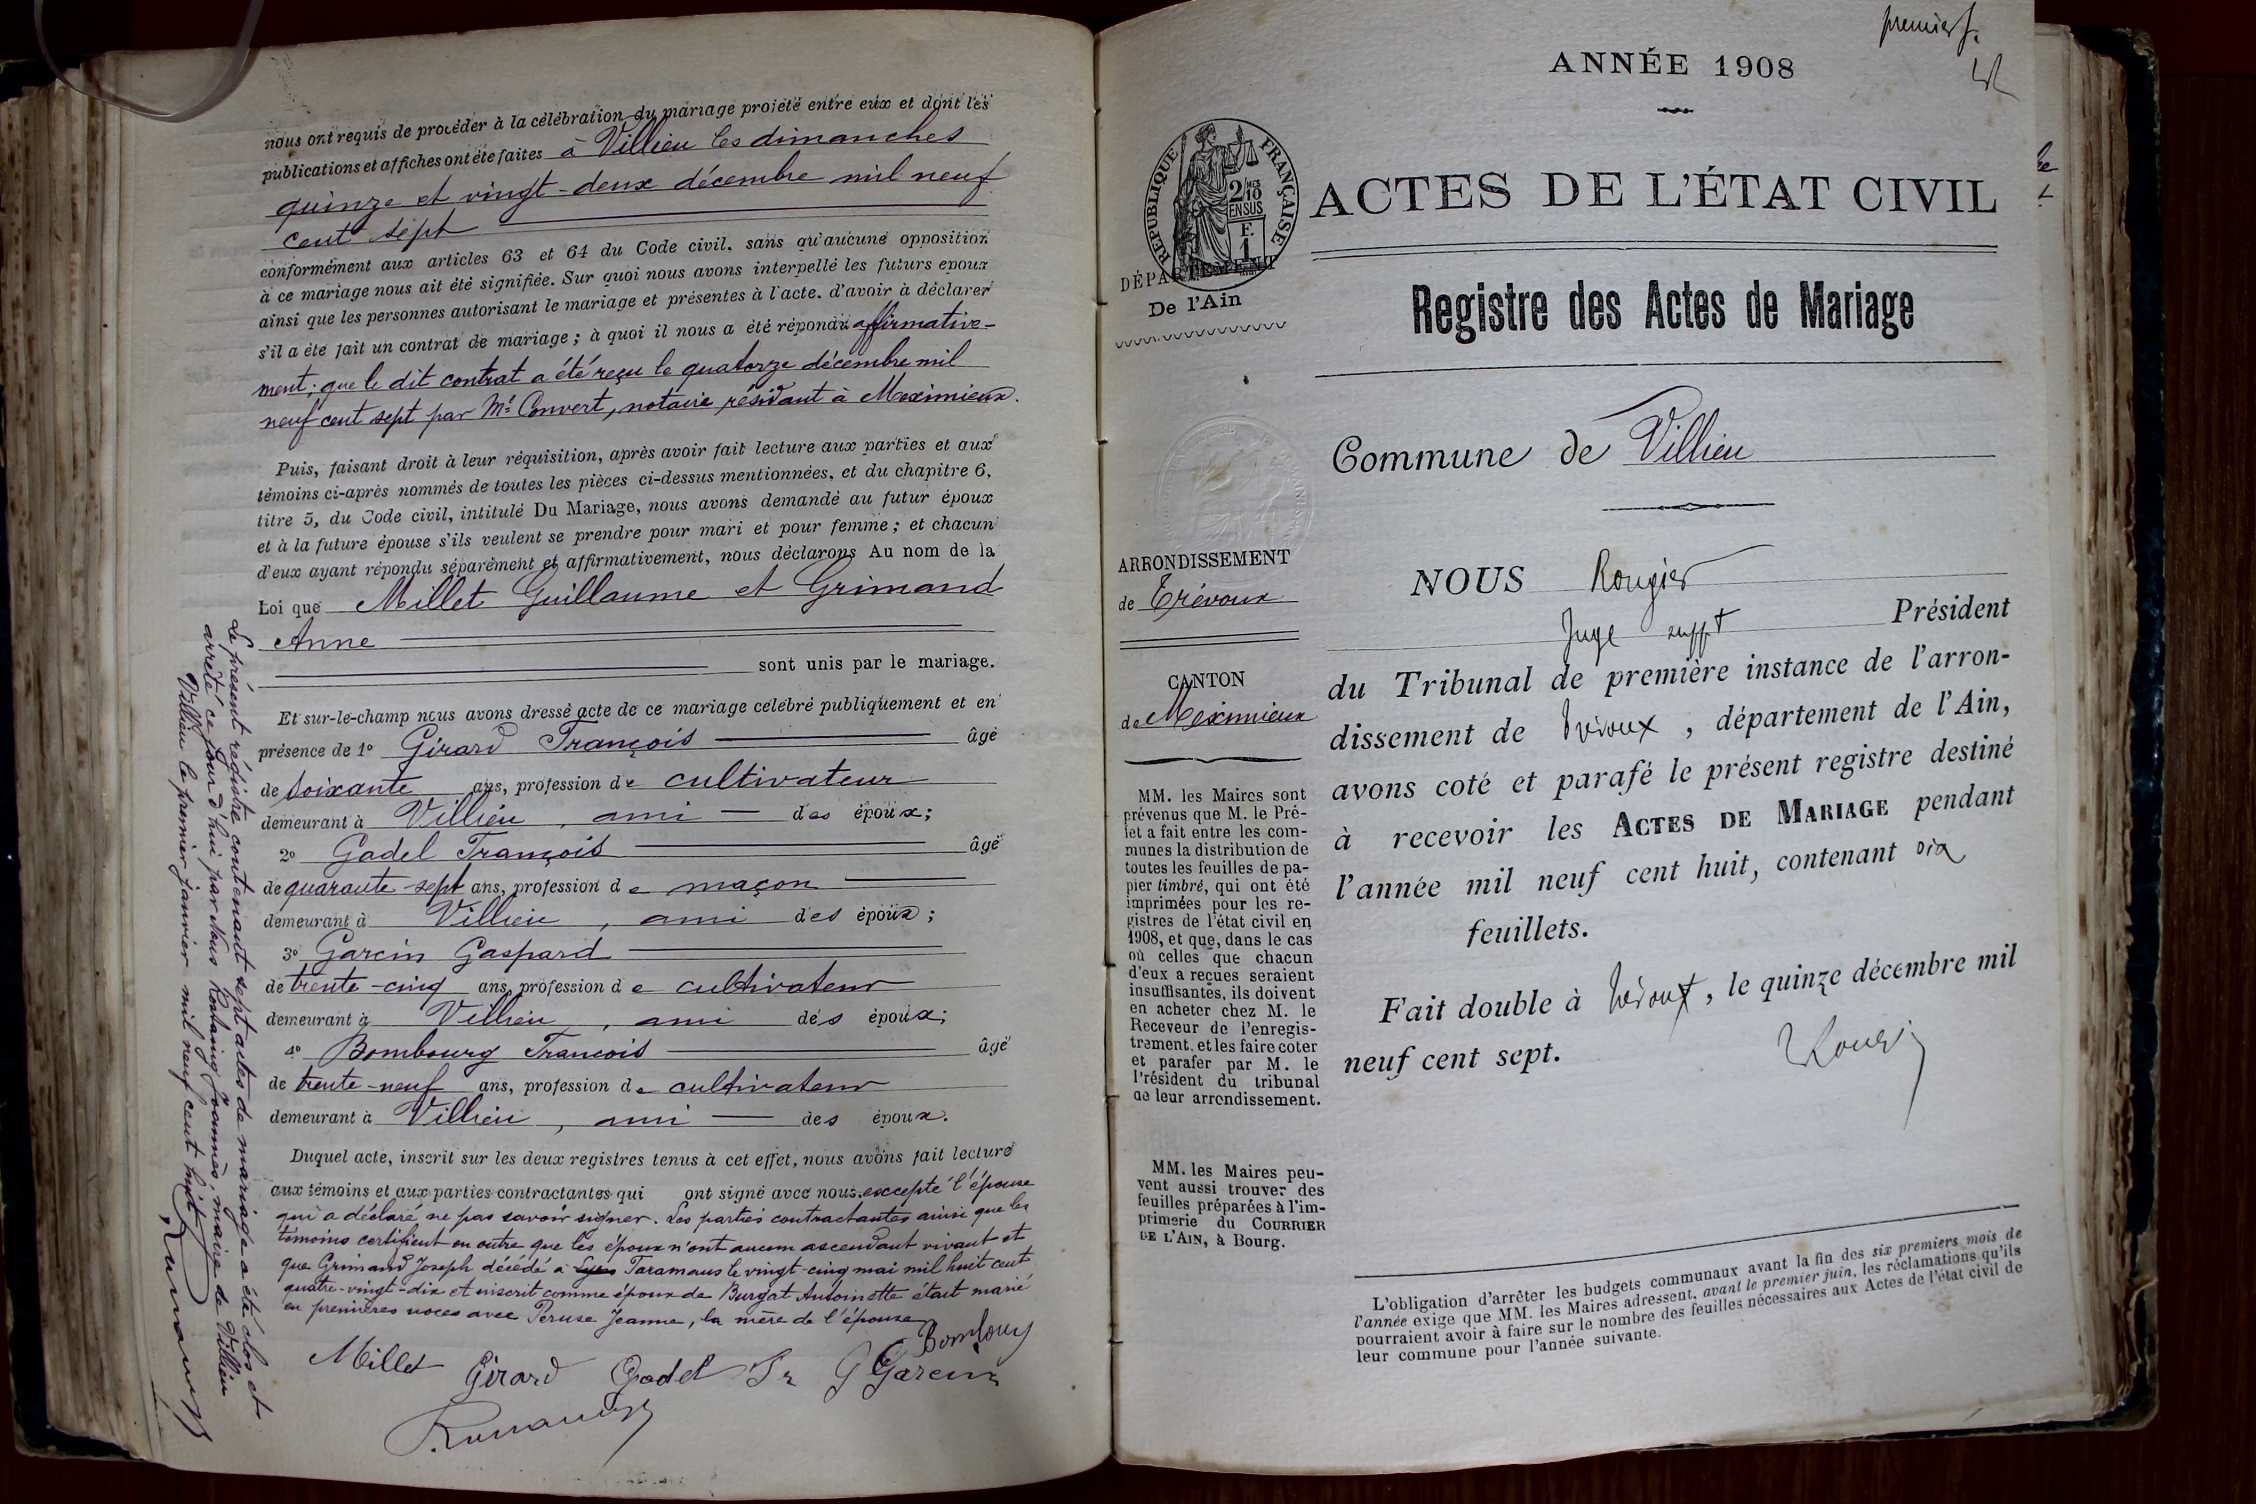 nous ont requis de procéder à la célébration du mariage projeté entre eux et dont les
publications et affiches ont été faites à Villieu les dimanches
quinze et vingt-deux décembre mil neuf
cent sept
conformément aux articles 63 et 64 du Code civil. sans qu'aucune opposition
à ce mariage nous ait été signifiée. Sur quoi nous avons interpellé les futurs epoux
ainsi que les personnes autorisant le mariage et présentes à l'acte. d'avoir à déclarer
s'il a été fait un contrat de mariage ; à quoi il nous a été répondu affirmative-
ment ; que le dit contrat a été reçu le quatorze décembre mil
neuf cent sept par Me Convert, notaire résidant à Meximieux.
Puis, faisant droit à leur réquisition, après avoir fait lecture aux parties et aux
témoins ci-après nommés de toutes les pièces ci-dessus mentionnées, et du chapitre 6,
titre 5, du Code civil, intitulé Du Mariage, nous avons demandé au futur époux
et à la future épouse s'ils veulent se prendre pour mari et pour femme ; et chacun
d'eux ayant répondu séparément et affirmativement, nous déclarons Au nom de la
Loi que Millet Guillaume et Grimand
Anne
sont unis par le mariage.
Et sur-le-champ nous avons dressé acte de ce mariage célébré publiquement et en
présence de 1º Girard François âgé
de soixante ans, profession de cultivateur
demeurant à Villieu, ami des époux ;
2º Gadel François âgé
de quarante-sept ans, profession de maçon
demeurant à Villieu, ami des époux ;
3º Garcin Gaspard
de trente-cinq ans, profession de cultivateur
demeurant à Villieu, ami des époux ;
4º Bombourg Francois âgé
de trente-neuf ans, profession de cultivateur
demeurant à Villieu, ami des époux.
Duquel acte, inscrit sur les deux registres tenus à cet effet, nous avons fait lecture
aux témoins et aux parties contractantes qui ont signé avec nous. excepté l'épouse
qui a déclaré ne pas savoir signer. Les parties contractantes ainsi que les
témoins certifient en outre que les époux n'ont aucun ascendant vivant et
que Grimand Joseph décédé à Taramans le vingt-cinq mai mil huit cent
quatre-vingt-dix et inscrit comme époux de Burgat Antoinette était marié
en premières noces avec Peruse Jeanne, la mère de l'épouse
Bombourg
Millet Girard Gadel Fr G Garcin
Le présent registre contenant sept actes de mariage a été clos et
arrêté ce jour d'hui par Nous Joannès, maire de Villieu
Villieu le premier janvier mil neuf cent huit
premier f.
ANNÉE 1908
RÉPUBLIQUE FRANÇAISE
2/10 EN SUS
F. 1
ACTES DE L'ÉTAT CIVIL
DÉPARTEMENT
De l'Ain
Registre des Actes de Mariage
Commune de Villieu
ARRONDISSEMENT
de Trévoux
CANTON
de Meximieux
MM. les Maires sont
prévenus que M. le Pré-
fet a fait entre les com-
munes la distribution de
toutes les feuilles de pa-
pier timbré, qui ont été
imprimées pour les re-
gistres de l'état civil en
1908, et que, dans le cas
où celles que chacun
d'eux a reçues seraient
insuffisantes, ils doivent
en acheter chez M. le
Receveur de l'enregis-
trement, et les faire coter
et parafer par M. le
Président du tribunal
de leur arrondissement.
MM. les Maires peu-
vent aussi trouver des
feuilles préparées à l'im-
primerie du COURRIER
DE L'AIN, à Bourg.
NOUS Rougier
Juge suppt Président
du Tribunal de première instance de l'arron-
dissement de Trévoux, département de l'Ain,
avons coté et parafé le présent registre destiné
à recevoir les ACTES DE MARIAGE pendant
l'année mil neuf cent huit, contenant dix
feuillets.
Fait double à Trévoux, le quinze décembre mil
neuf cent sept.
Rougier
L'obligation d'arrêter les budgets communaux avant la fin des six premiers mois de
l'année exige que MM. les Maires adressent, avant le premier juin, les réclamations qu'ils
pourraient avoir à faire sur le nombre des feuilles nécessaires aux Actes de l'état civil de
leur commune pour l'année suivante.